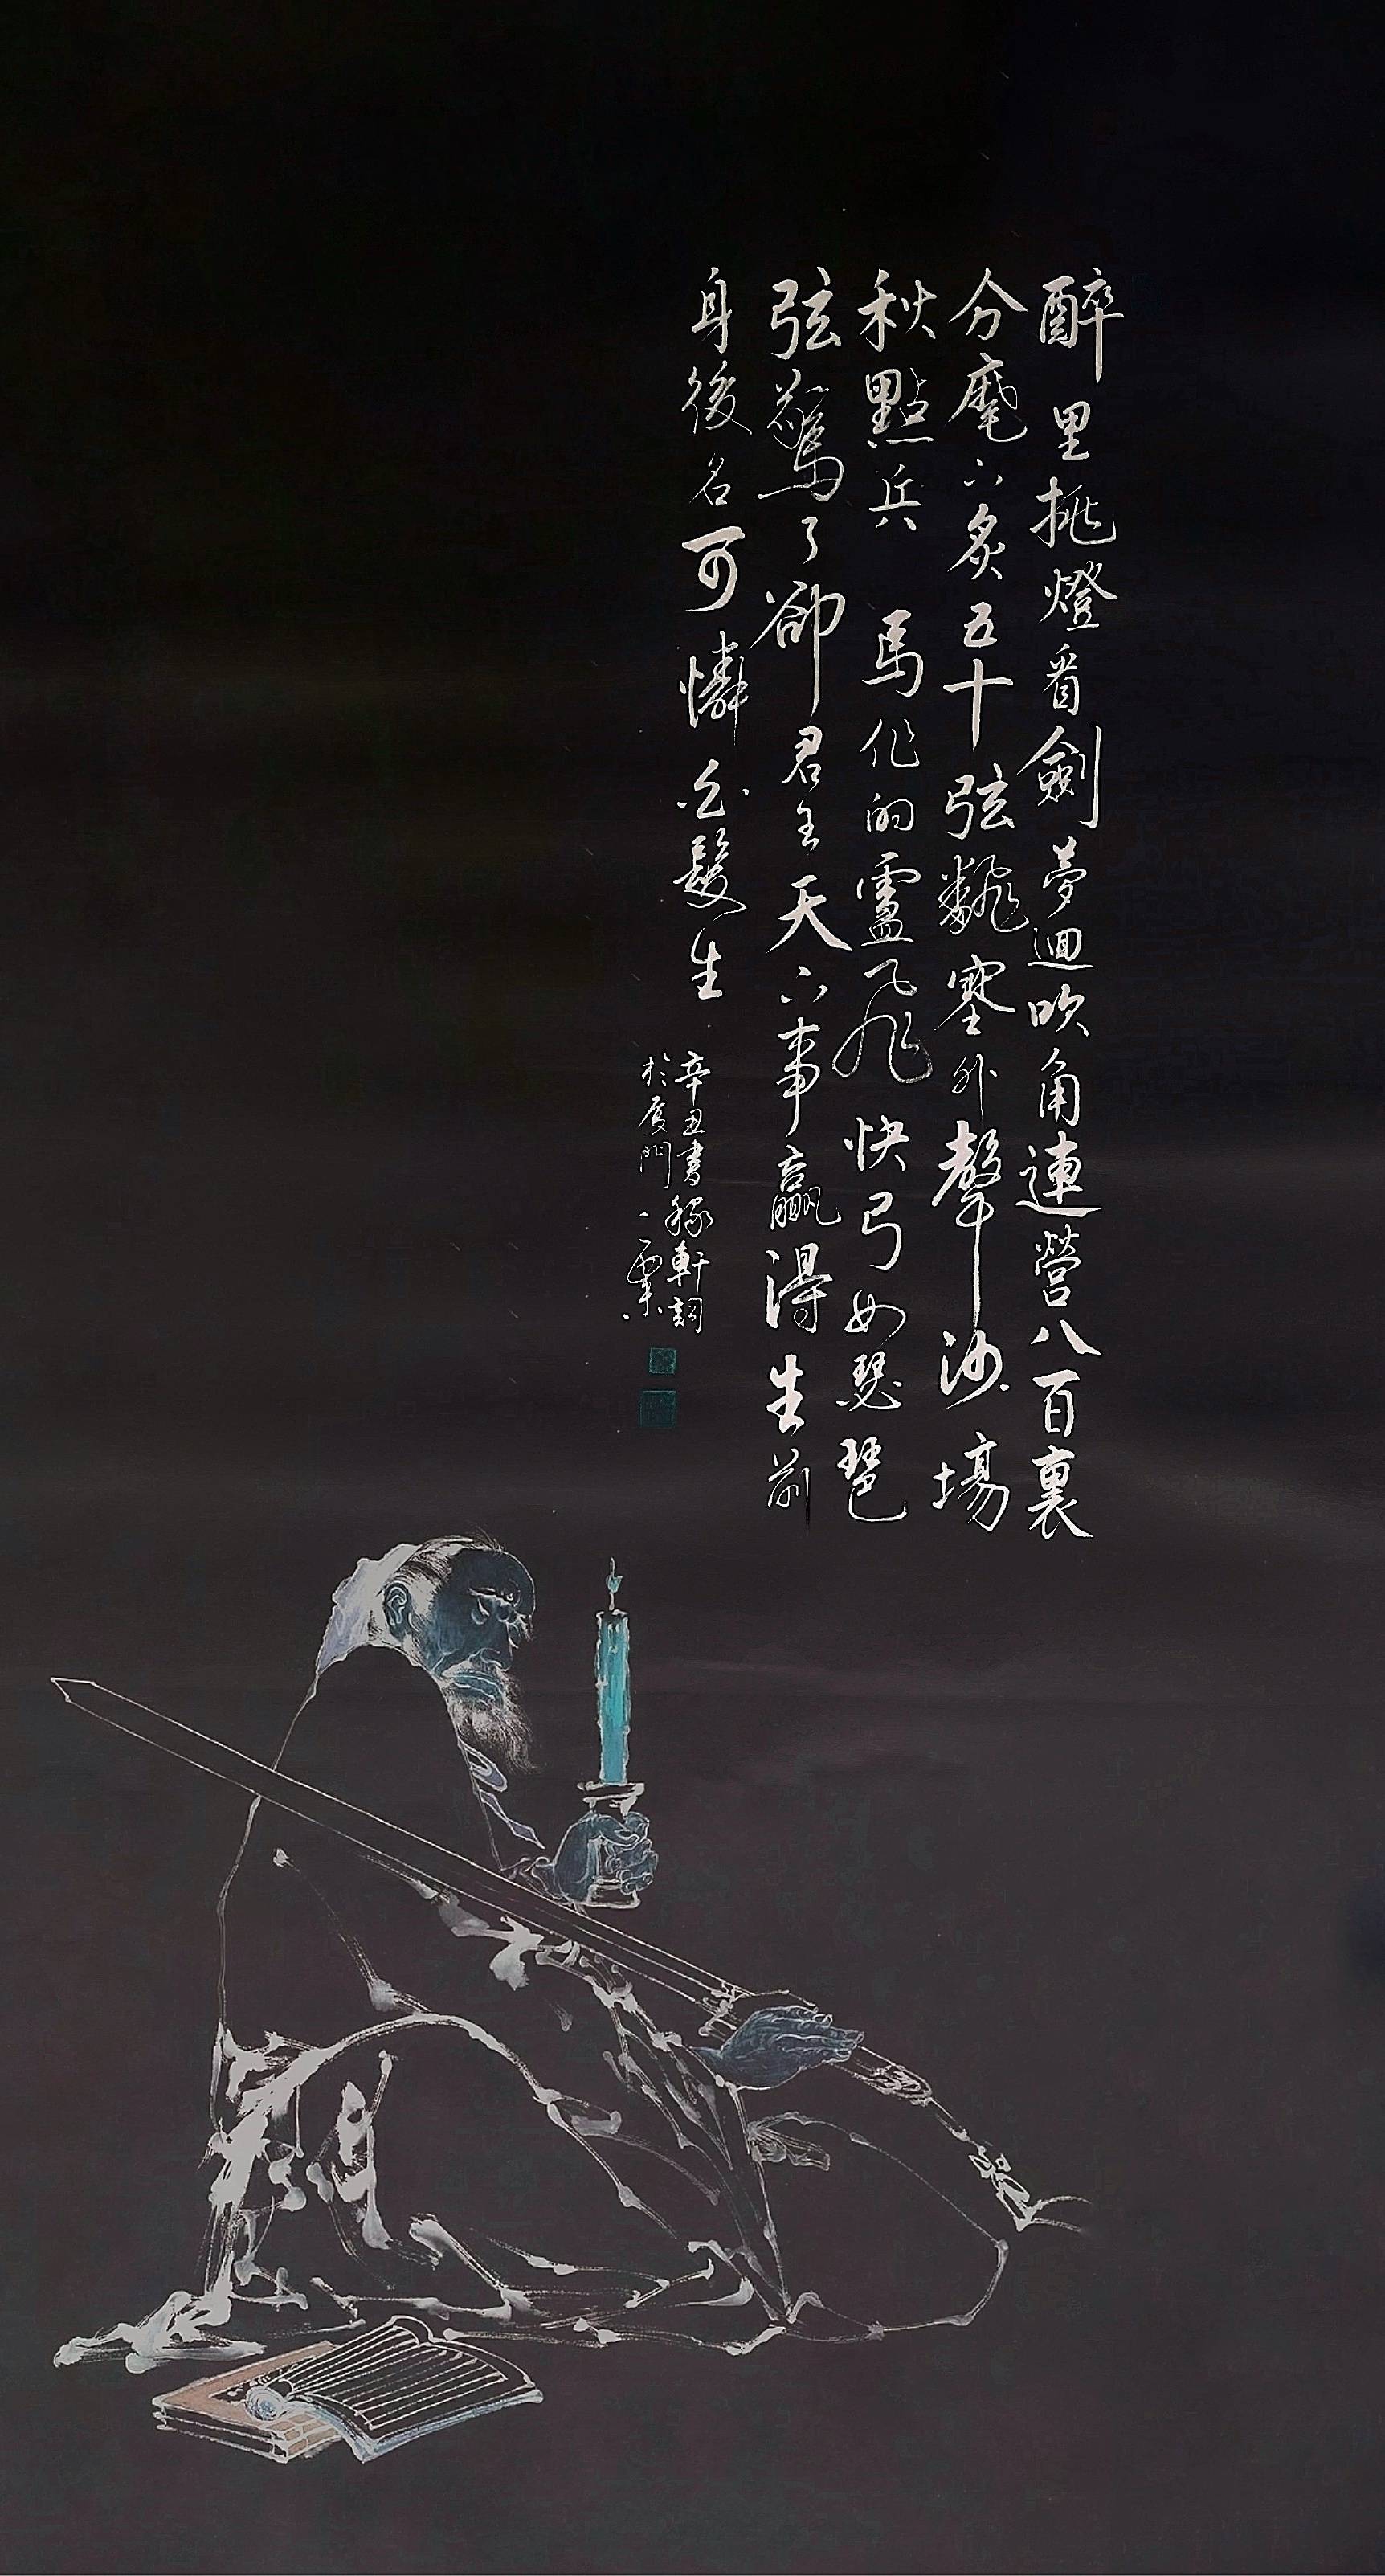 醉里挑燈看劍夢迴吹角連營八百裏
分麾下炙五十弦翻塞外聲沙場
秋點兵 馬作的盧飛快弓如瑟琶
弦驚了卻君王天下事贏得生前
身後名可憐白髮生
辛丑書稼軒詞
於厦門一粟